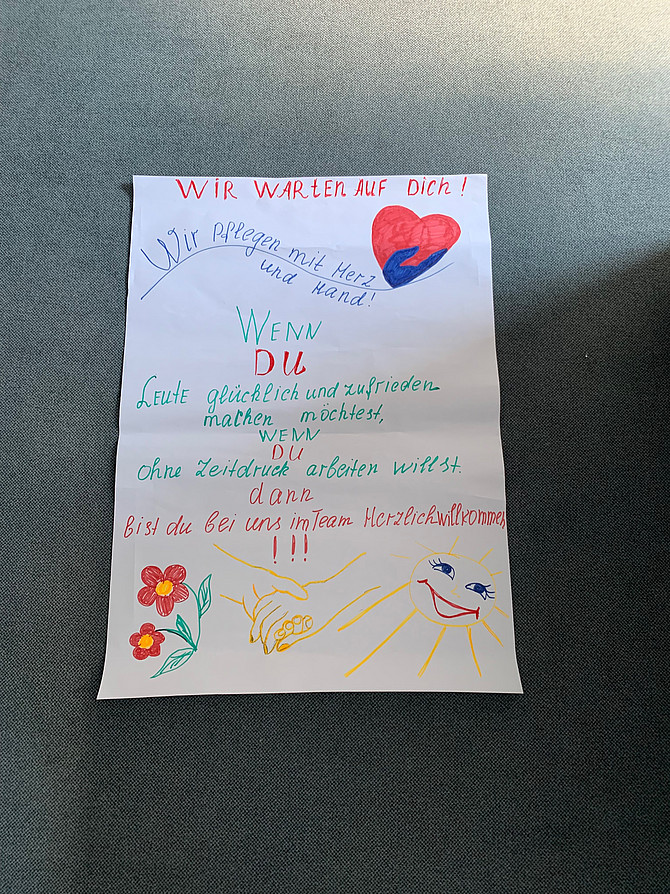 WIR WARTEN AUF DICH!
Wir Pflegen mit Herz
und Hand!
WENN
DU
LEUTE glücklich und zufrieden
machen möchtest,
WENN
DU
ohne Zeitdruck arbeiten willst.
dann
bist du bei uns im Team Herzlich willkommen
!!!